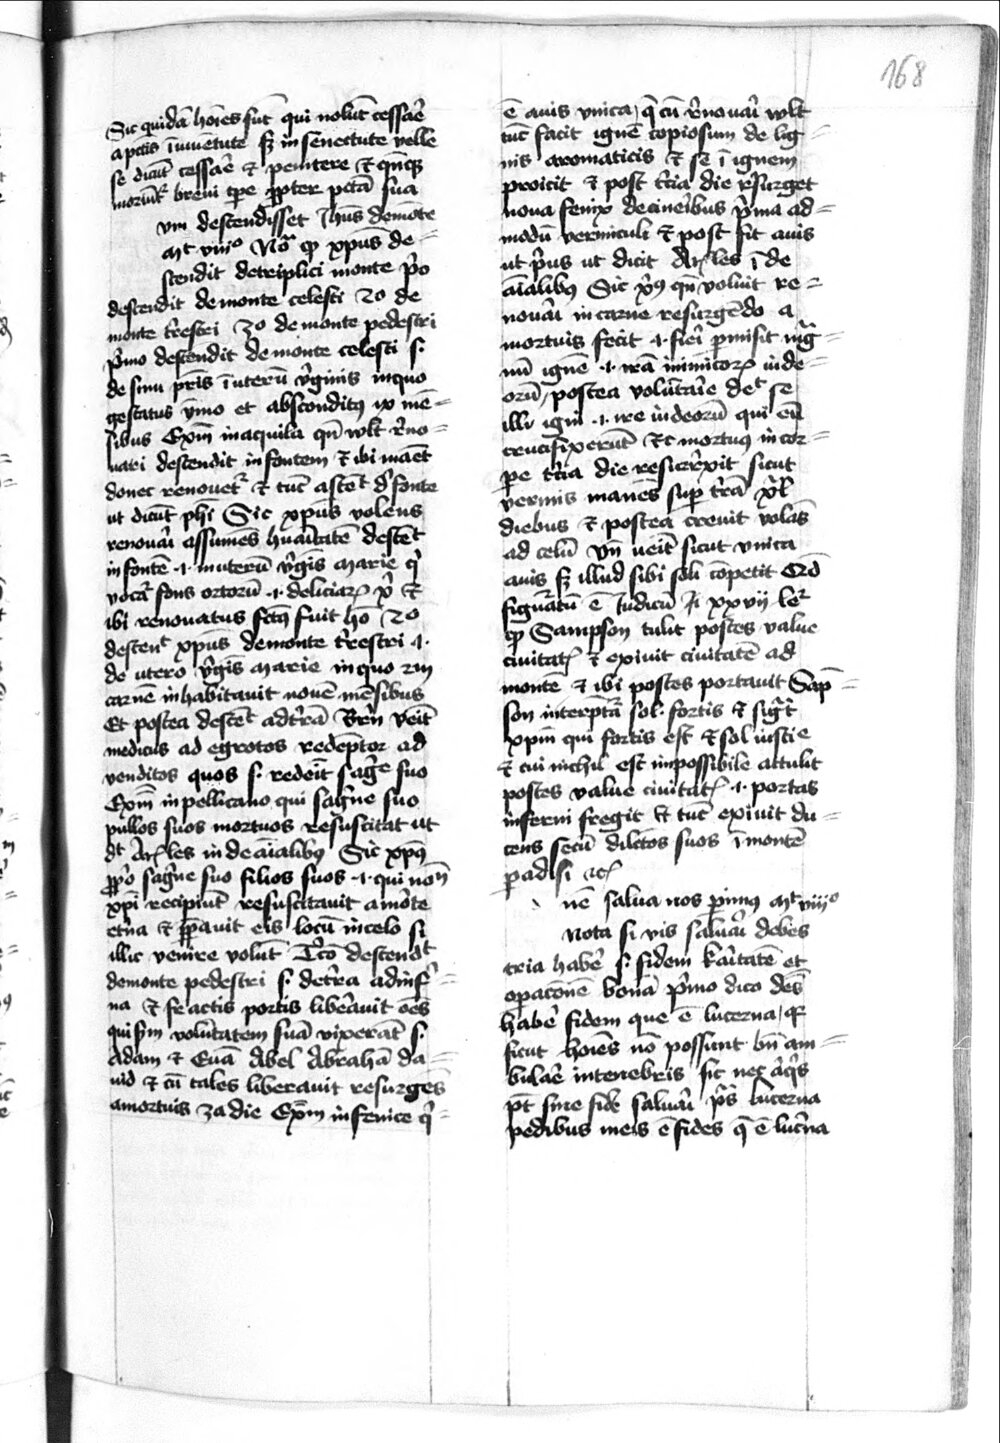 168
Sic quidā hōies sūt qui nolūt cessar̄e
a pctīs ī iuuētute sʒ in senectute velle
se dicūt cessar̄e & penitere & qn̄qʒ
moriūtʳ breui tp̄e ꝓpter pctā sua
vm descendisset Jhūs de mōte
Mt viijº Notᷓ ꝙ xpūs de=
scendit de triplici monte pᷓo
descendit de monte celesti 2o de
monte tr̄estri 3o de monte pedestri
pᷓmo descendit de monte celesti s.
de sinu pr̄is ī uterū vᷓginis in quo
gestatus et absconditꝰ ix mē=
sibus Exm̄ in aquila qn̄ wlt r̄no=
uari descendit in fontem & ibi manet
donec renouetʳ & tūc ascēt d' fonte
ut dicūt ph̄i Sic xpūs volens
renouar̄i assumēs huāitatē descēt
in fontē .i. in uterū vᷓgīs marie q̄
vocatʳ fons ortorū .i. deliciaꝝ &
ibi renouatus fctūs fuit hō 2o
descent xpūs de monte tr̄estri .i.
de utero vᷓgīs marie in quo cū
carne inhabitauit nouē mēsibus
Et postea descēt ad tr̄rā Br̄n veīt
medicus ad egrotos redēptor ad
venditos quos s. redeīt sāgᷓe suo
Exm̄ in pellicano qui sāgᷓne suo
pullos suos mortuos resuscitat ut
dt Ar̄les in de aīalibꝰ Sic xpūs
ꝓpᷓo sāgᷓne suo filios suos .i. qui nomē
xpī recipiūt resuscitauit a mōte
etᷓna & ꝑpauit eis locū in celo si
illic venire volūt Tᷓcō descendt
de monte pedestri s. de tr̄ra ad inf=
na & fractis portis liberauit oēs
qui scdm̄ volūtatem suā vixerāt s.
Adam & Euā Abel Abrahā da=
uid & cū tales liberauit resurgēs
a mortuis 3a die Exm̄ in fenice q̄=
ē auis vnica q̄ cū r̄nouar̄i wlt
tūc facit ignē copiosum de lig=
nis aromaticis & se ī ignem
proicit & post tᷓcia die r̄surget
noua fenix de cineribus pᷓma ad=
modū vermiculi & post sit auis
ut pᷓus ut dicit Ar̄les ī de
aīalibꝰ Sic xp̄s qn̄ voluit re=
nouar̄i in carne resurgēdo a
mortuis fecit .i. fieri pmisit mᷓg=
nū ignē .i. irā inimicoꝝ iude=
orū / postea volūtar̄ie det se
illi igni .i. ire iudeorū qui eū
crucifixerūt Et mortuꝰ in cor=
pe tᷓcia die resurrexit sicut
vermis manēs sup tr̄rā xl
diebus & postea creuit volās
ad celū Vn̄ ueīt sicut vnica
auis sʒ illud sibi soli cōpetit Qd̄
figuratū ē Judicū
ꝙ Sampson tulit postes value
ciuitatꝭ & exiuit ciuitatē ad
montē & ibi postes portauit Sāp=
son interptᷓ sol fortis & sigᷓt
xpm̄ qui fortis est & sol iusticie
& cui nichil est impossibile attulit
postes value ciuitatꝭ .i. portas
inferni fregit Et tūc exiuit du=
cens secū dilctōs suos ī montē
padisi etc
nē salua nos pimꝰ Mt viijº
Nota si vis saluar̄i debes
tria haber̄e s. fidem kar̄itatē et
opacōnē bonā pᷓmo dico debēs
haber̄e fidem que ē lucerna / qꝫ
sicut hoīes nō possunt bn̄ am=
bular̄e in tenebris sic nec aᷓqͥs
pt sine fide saluar̄i pᷓs lucerna
pedibus meis ē fides q̄ ē lucᷓna